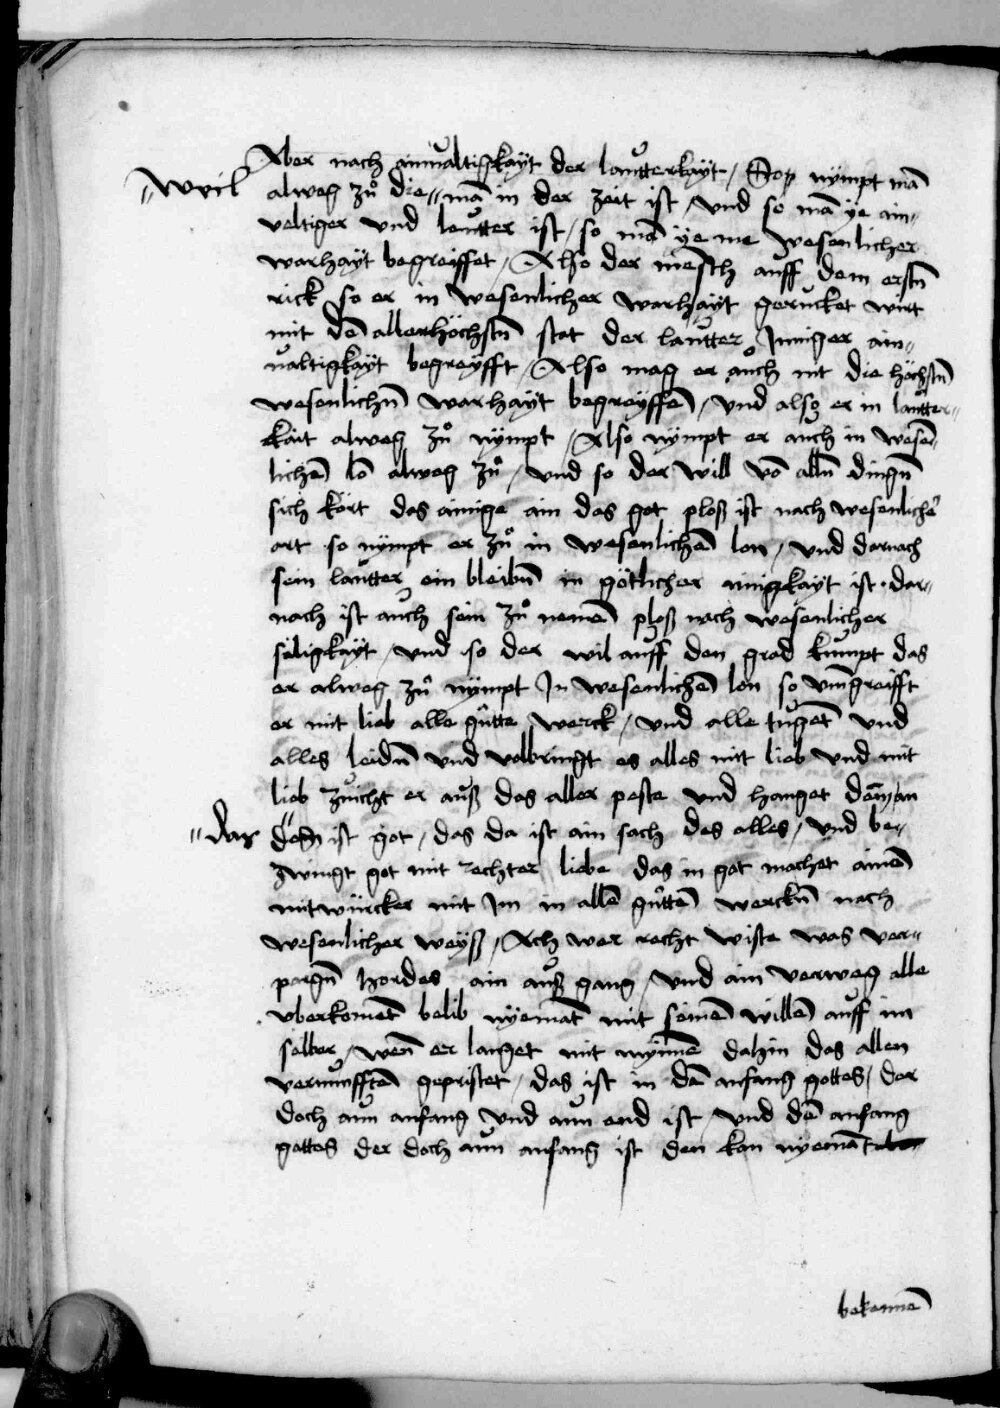 Aber nach ainualtigkayt der lautterkayt / Dor nympt mā
"weil
alweg zů die " mā in der zeit ist / vnd so mā ye ain-
veltiger vnd leutter ist / so mā ye me wesenlicher
warhayt begreiffet / Also der mēsch auff dem erstñ
rick so er in wesenlicher warhayt gerucket wirt
mit dē allerhöchstñ stat der lautter Inniger ain-
ualtigkayt begreyfft / Also mag er auch mit die höchstñ
wesenlichñ warhayt begreyffē / vnd also er in lautter-
kait alweg zů nympt / Also nympt er auch in wesen-
lichē lō alweg zů / vnd so der will vō allñ dingñ
sich kört das ainige ain das got ploß ist nach wesenlicher
art so nympt er zů in wesenlichē lon / vnd darnach
sein lautter ein bleibñ in götlicher ainigkayt ist · dar-
nach ist auch sein zů nemē ploß nach wesenlicher
säligkayt / vnd so der wil auff den grad kumpt das
er alweg zů nympt In wesenlichē lon so vmgreifft
er mit lieb alle gůtte werck / vnd alle tugēt vnd
alles leidñ vnd volbringt es alles mit lieb vnd mit
lieb zuicht er auß das aller peste vnd hanget dem an
"das
ist got / das da ist ain sach des alles / vnd be-
zwingt got mit rechter liebe das in got machet ainē
mitwürcker mit Im in allē gůttē werckñ nach
wesenlicher weyß / Ach wer recht wiste was ver-
porgñ hordes ain auß gang / vnd ain verweg alle
vberkomēt belib nyemāt mit seinē willē auff im
selber / wen er langet mit mynnē dahin das allen
vernunfftē gepristet / das ist in dē anfang gottes / der
doch aun anfang vnd aun end ist / vnd dē anfang
gottes der doch aun anfang ist den kan nyemāt
bekennē